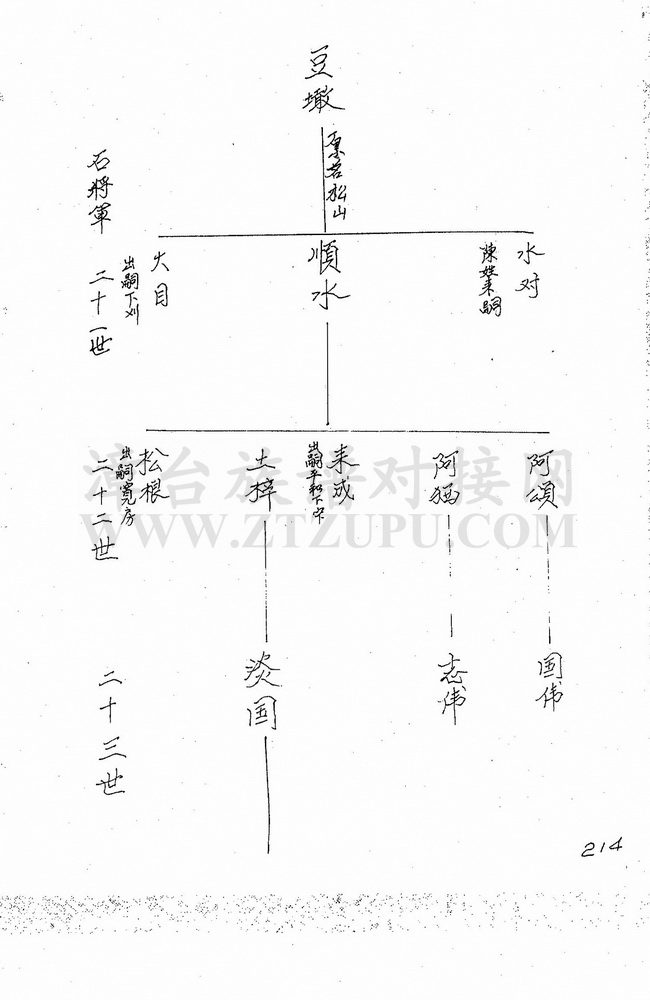 豆墩
原名松山
石將軍
水对
陳姓来嗣
順水
火目
出嗣下刈
二十一世
阿頌
阿猫
来成
土梓
松根
出嗣寬房
二十二世
国伟
志伟
淡国
二十三世
漳台族譜对接网
WWW.ZTZUPU.COM
214